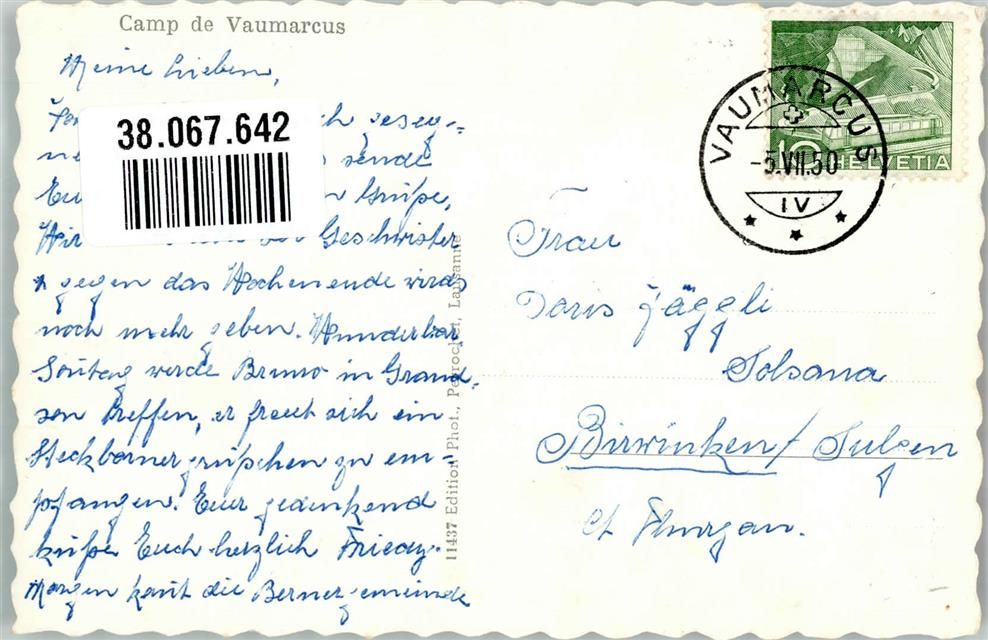 Camp de Vaumarcus
Meine Lieben,
38.067.642
ch geseg-
ne sende
Eu n Grüße,
Wir Geschwister
gegen das Wochenende wirds
noch mehr geben. Wunderbar,
Sontag werde Bruno in Grand-
son treffen, er freut sich ein
Steckbornergrüßchen zu em-
pfangen. Euer gedenkend
küße Euch herzlich Friedy.
Morgen komt die Bernergemeinde
11437 Edition Phot., Perrochet, Lausanne
VAUMARCUS
-5.VII.50
IV
10 HELVETIA
Frau
Doris Jäggli
Solsana
Birwinken / Sulgen
Ct Thurgau.